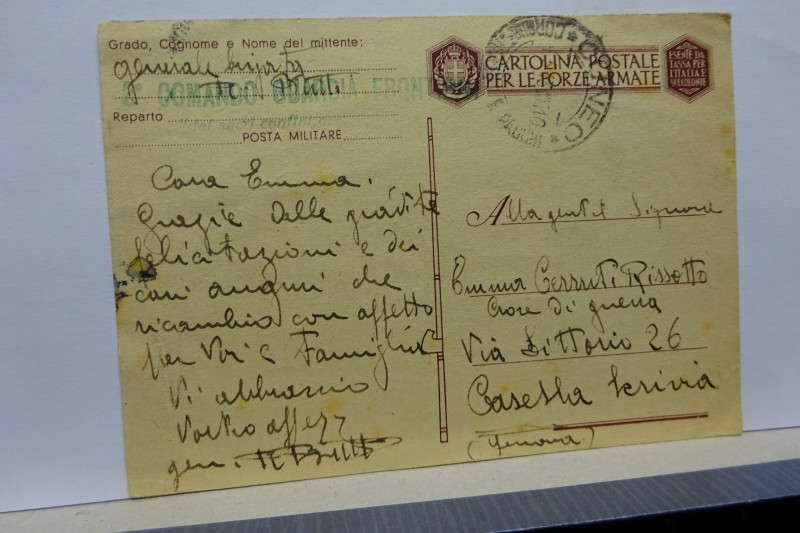 Grado, Cognome e Nome del mittente:
generale
2° COMANDO GUARDIA FRONT
Reparto
POSTA MILITARE
Cara Emma.
Grazie delle gradite
felicitazioni e dei
cari auguri che
ricambio con affetto
per Voi e Famiglia
Vi abbraccio
Vostro affezz
gen.
CARTOLINA POSTALE
PER LE FORZE ARMATE
ESENTE DA
TASSA PER
L'ITALIA E
CUNEO
Alla gentil Signora
Emma Cerruti Rissotto
Croce di guerra
Via Littorio 26
Casella Scrivia
(Genova)